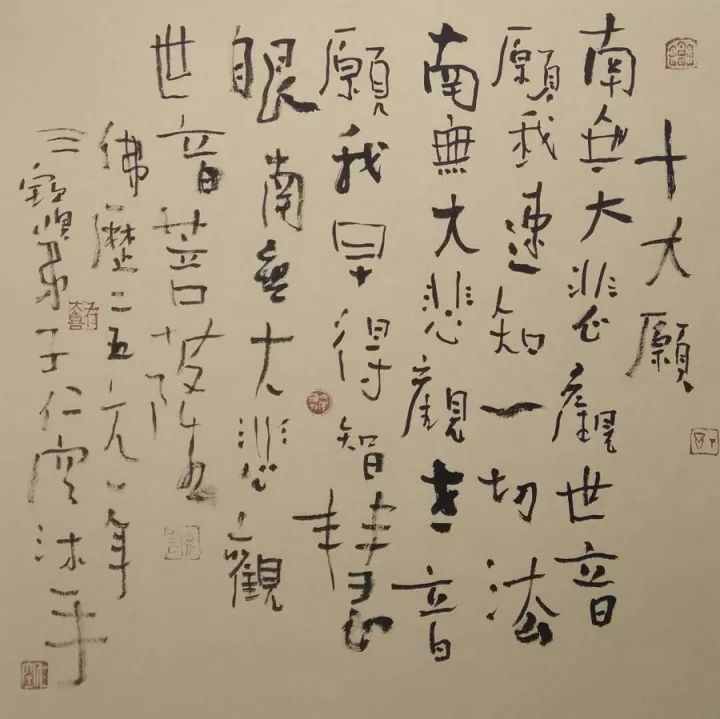 十大願
南無大悲觀世音
願我速知一切法
南無大悲觀世音
願我早得智慧
眼南無大悲觀
世音菩薩
佛歷二五年
三寶弟子仁空沐手